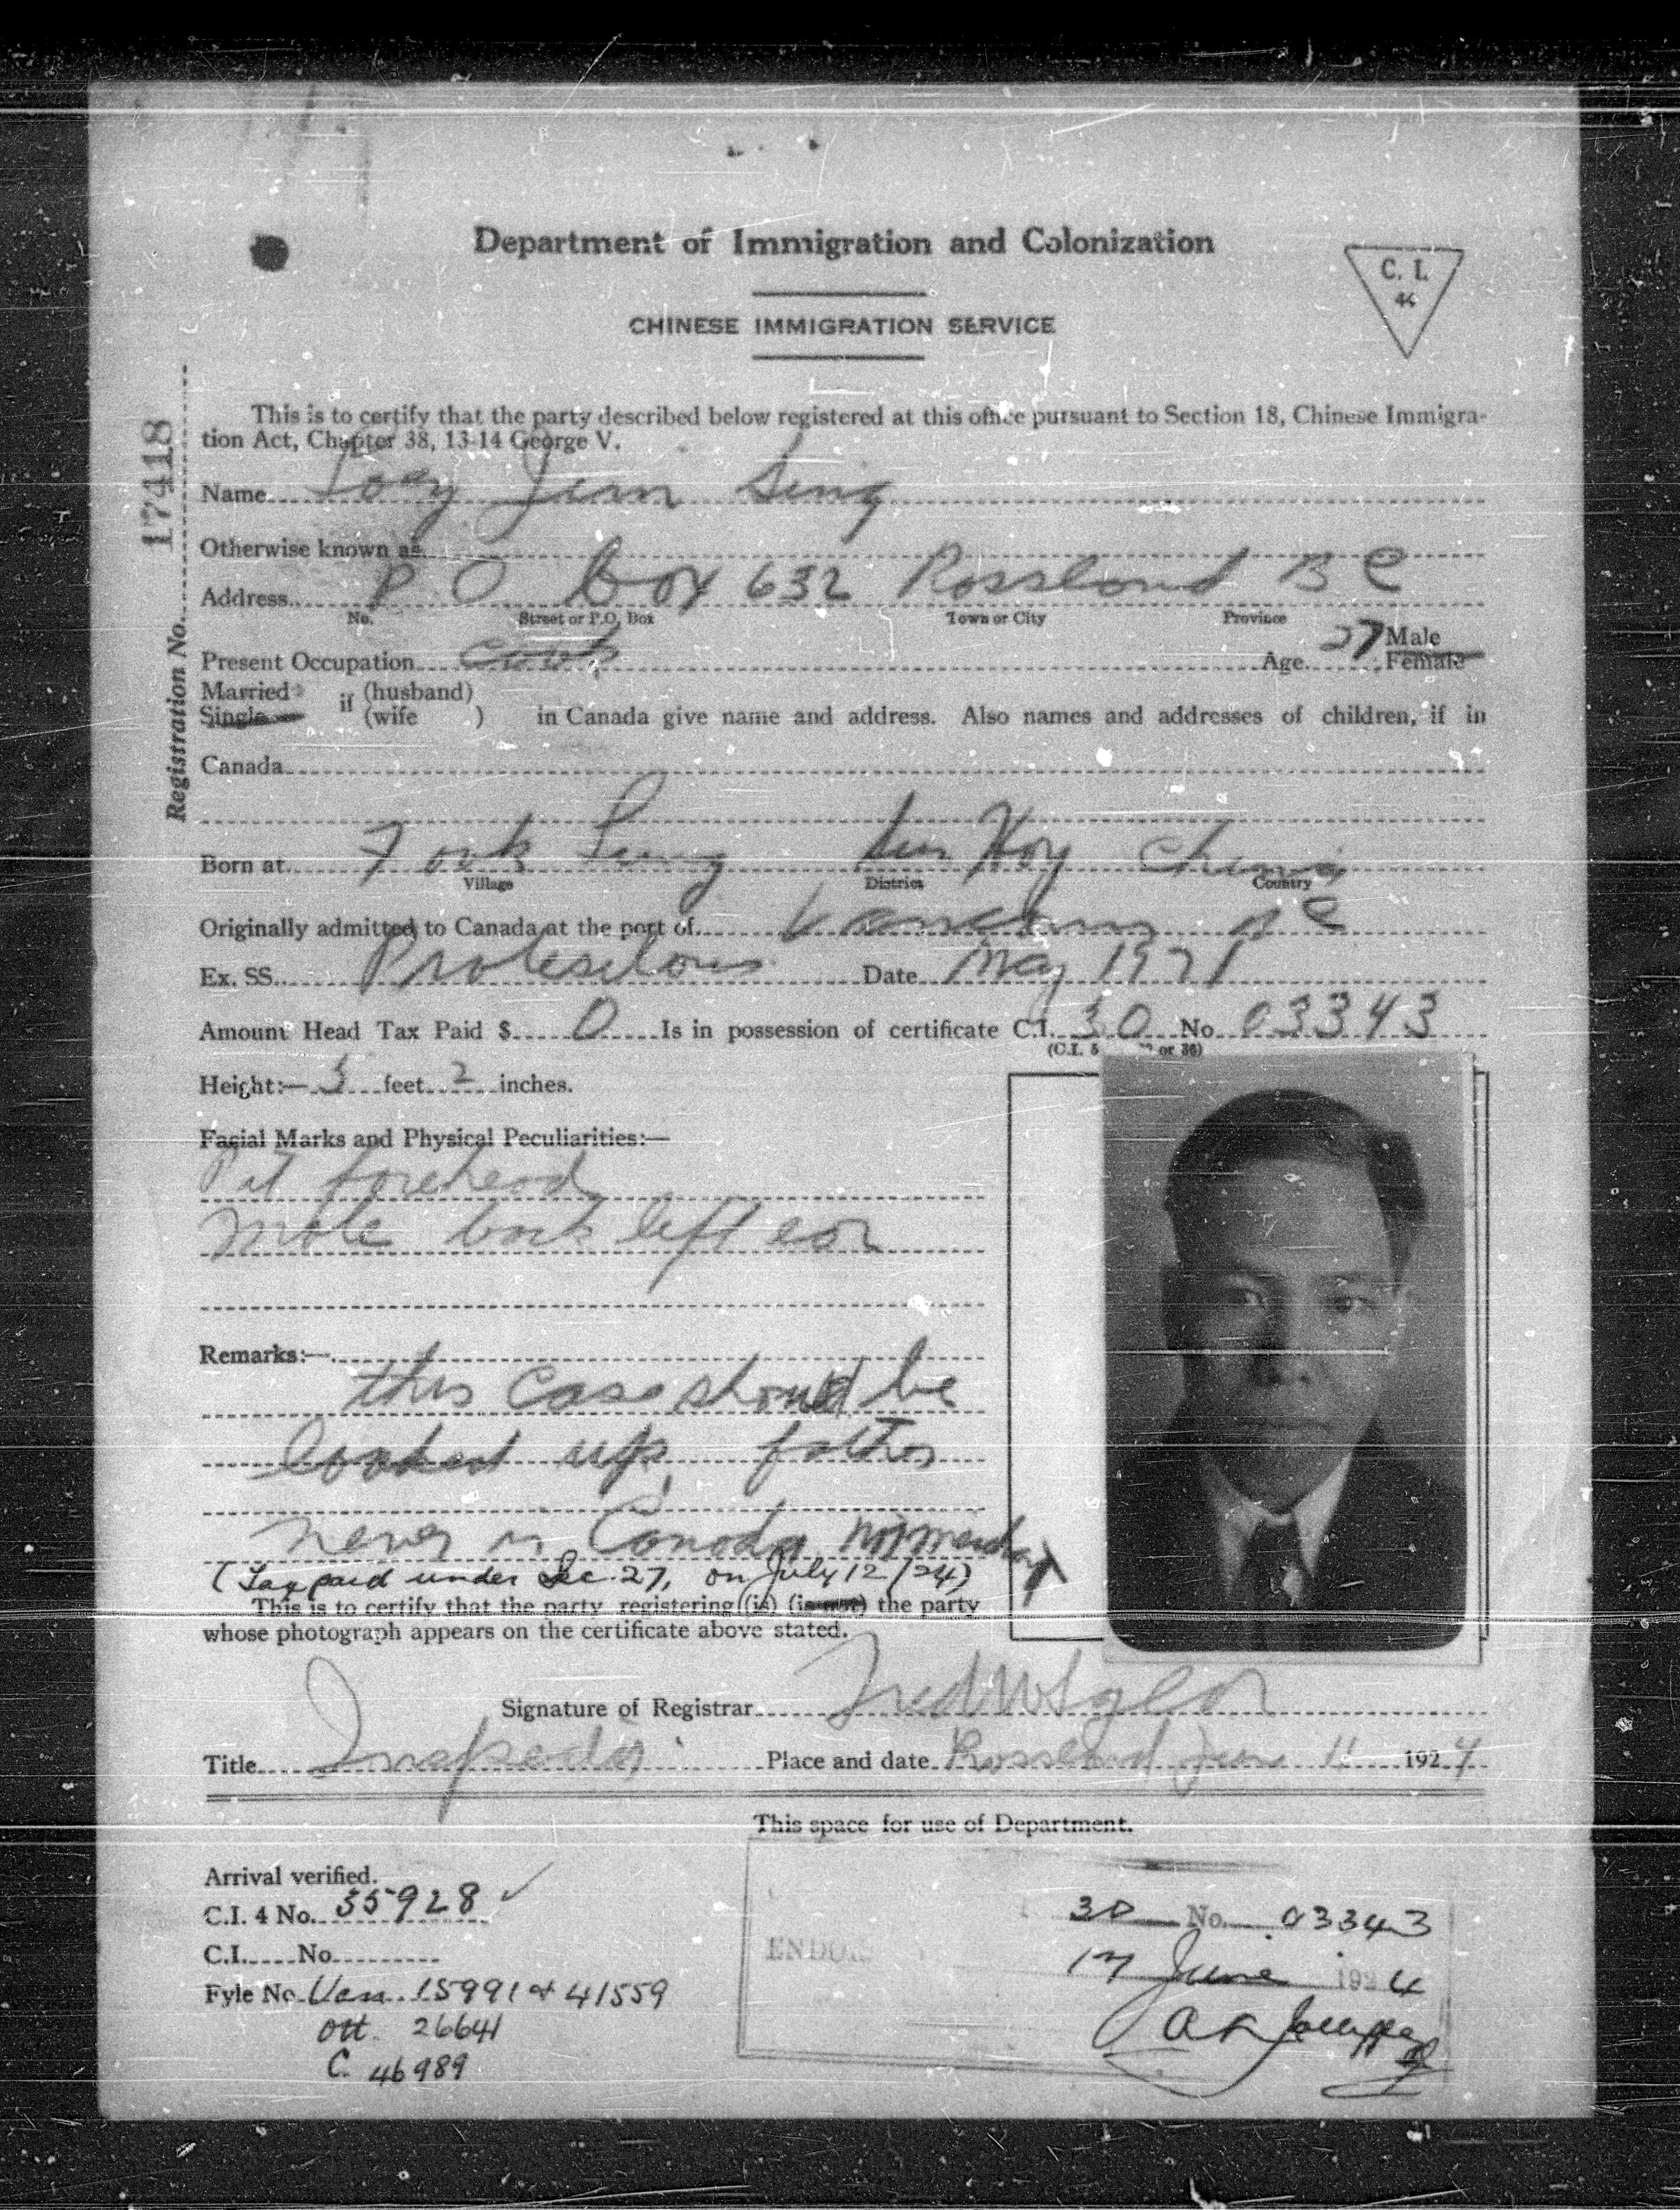 Department of Immigration and Colonization
C. I.
44
CHINESE IMMIGRATION SERVICE
Registration No. 174118
This is to certify that the party described below registered at this office pursuant to Section 18, Chinese Immigra-
tion Act, Chapter 38, 13-14 George V.
Name Looy Jim Sing
Otherwise known as
Address P O box 632 Rossland B C
No. Street or P.O. Box Town or City Province
Present Occupation cook Age 27 Male
Female
Married
Single if (husband)
(wife ) in Canada give name and address. Also names and addresses of children, if in
Canada
Born at Fook Lung Sun Hoy China
Village District Country
Originally admitted to Canada at the port of Vancouver B C
Ex. SS. Protesilous Date May 1921
Amount Head Tax Paid $ 0 Is in possession of certificate C.I. 30 No 03343
(C.I. 5 or 36)
Height:— 5 feet 2 inches.
Facial Marks and Physical Peculiarities:—
Pit forehead
Mole back left ear
Remarks:—
this case should be
looked up, father
never in Canada not merchant
(Tax paid under Sec. 27, on July 12/24)
This is to certify that the party registering (is) (is not) the party
whose photograph appears on the certificate above stated.
Signature of Registrar Fred W
Title Inspector Place and date Rossland June 11 1924
This space for use of Department.
Arrival verified.
C.I. 4 No. 35928 ✓
C.I. No.
Fyle No Van. 15991 & 41559
Ott. 26641
C. 46989
30 No. 03343
17 June 1924